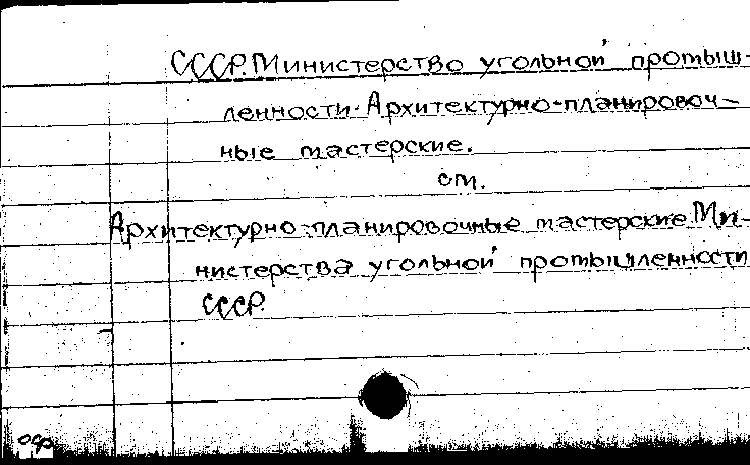 СССР. Министерство угольной промыш-
ленности. Архитектурно-планировоч-
ные мастерские.
см.
Архитектурно-планировочные мастерские Ми-
нистерства угольной промышленности
СССР.